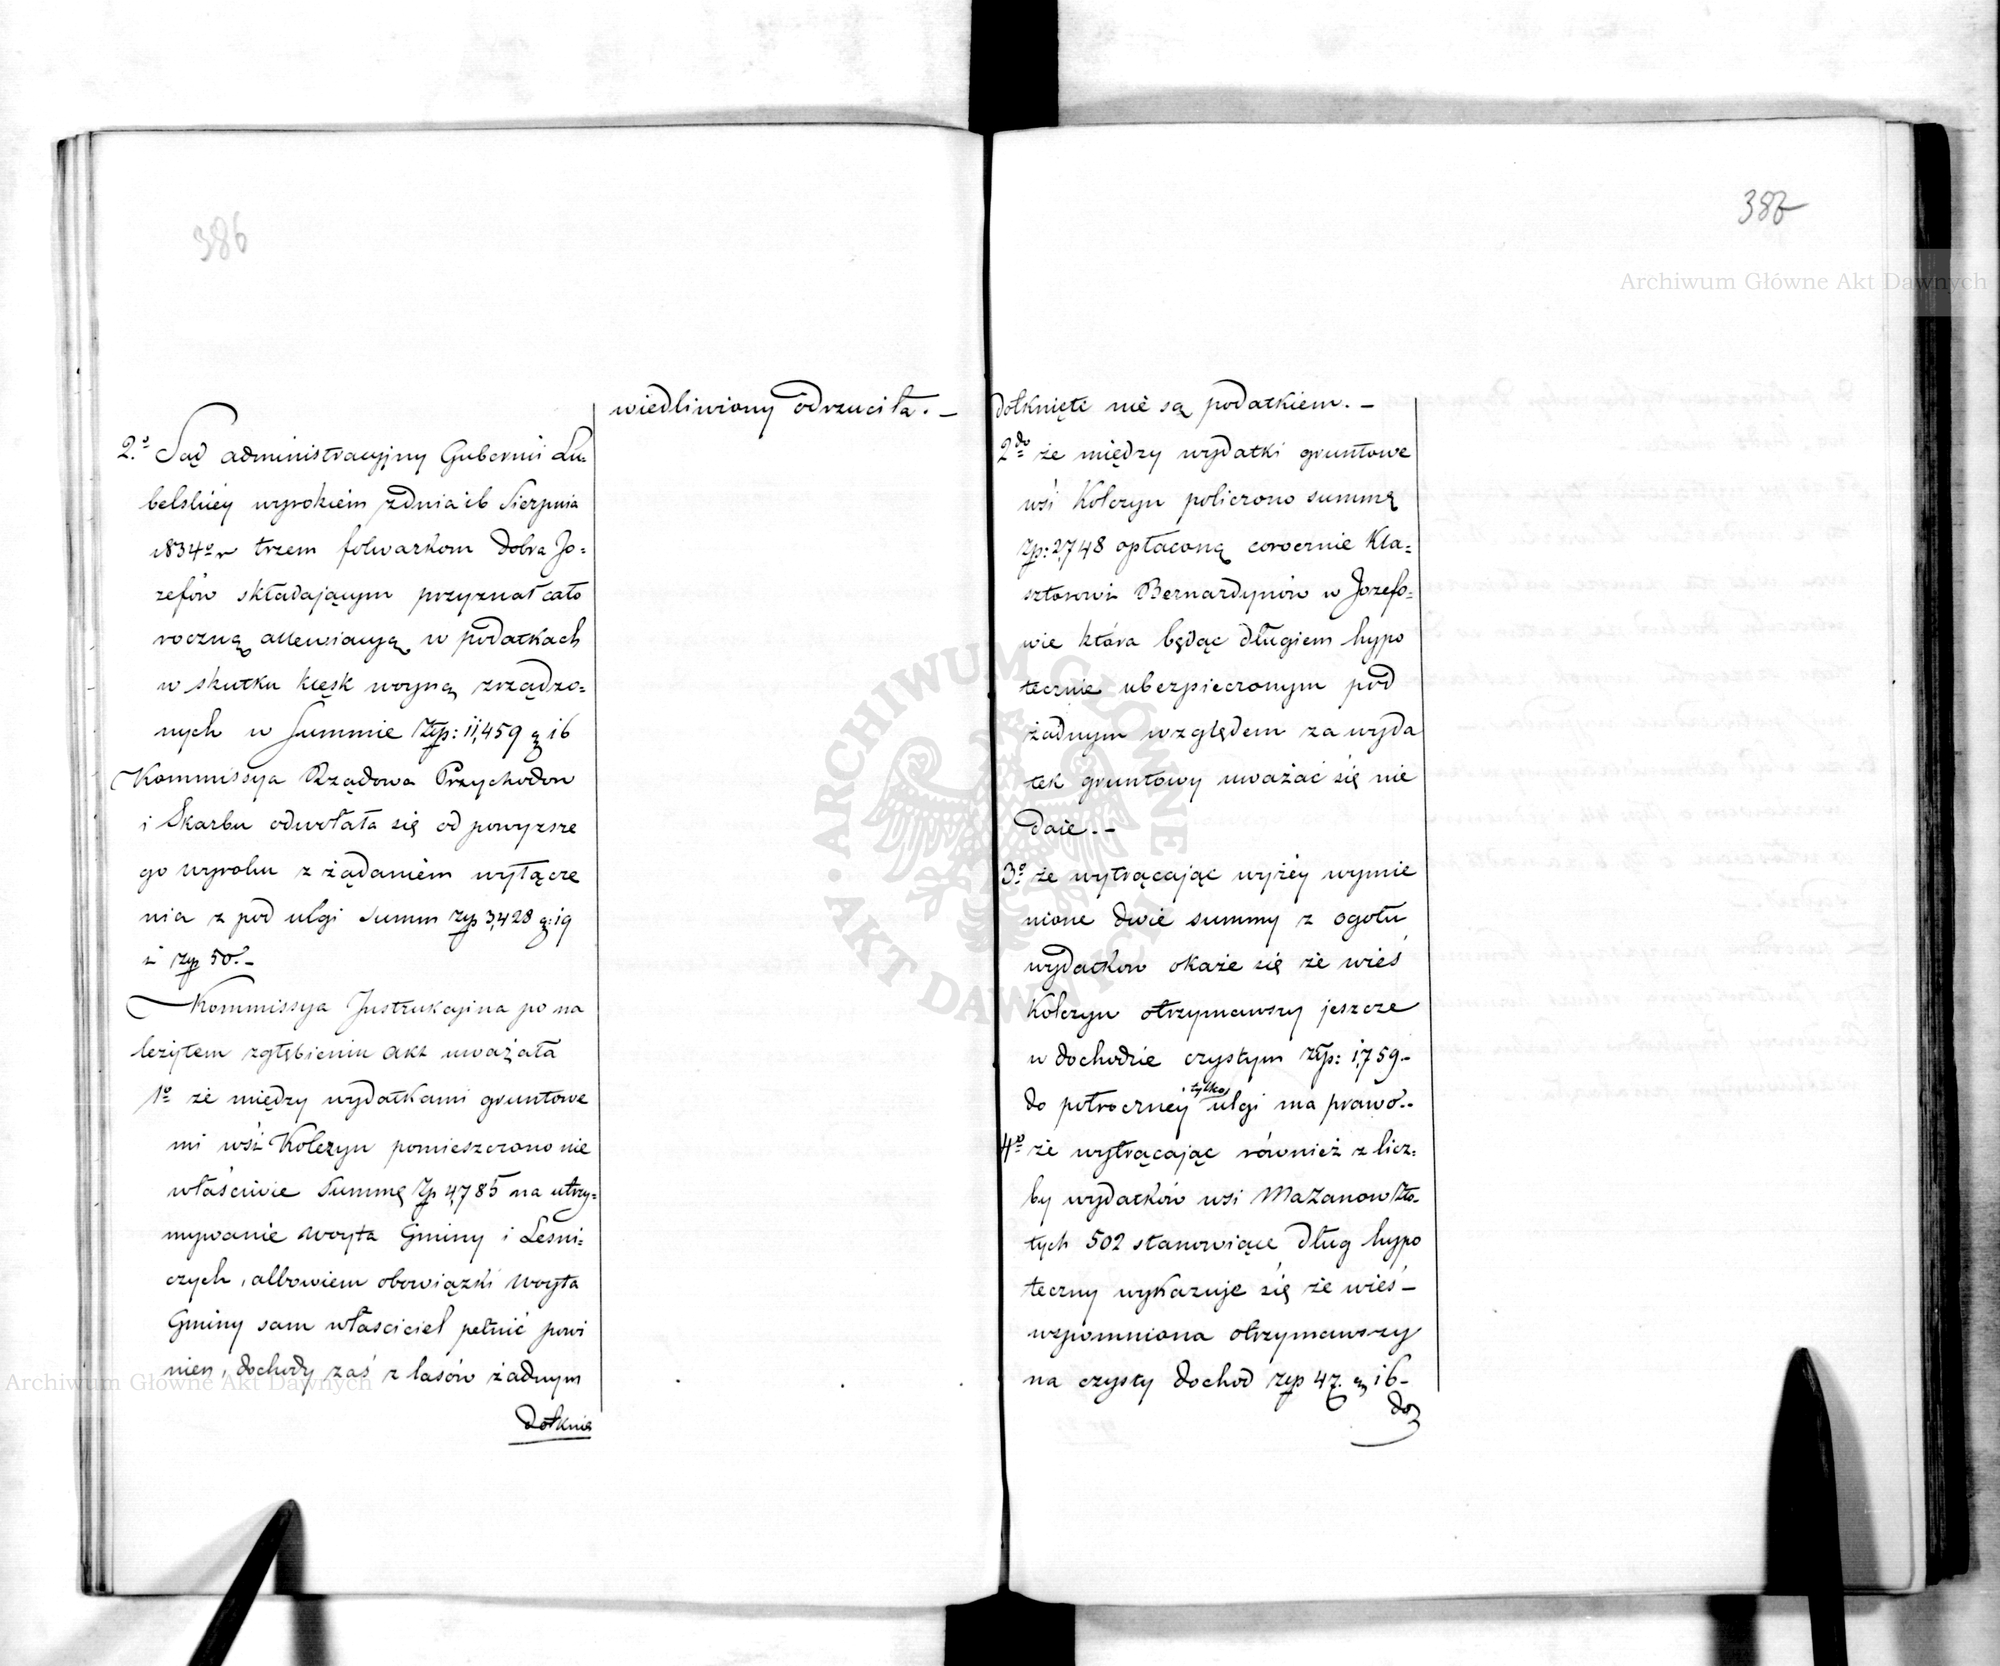 386
wiedliwiony odrzuciła. —
2.º Sąd administracyjny Gubernii Lu=
belskiey wyrokiem z dnia 16 Sierpnia
1834º r trzem folwarkom dobra Jo=
zefów składającym przyznał cało
roczną allewiacyą w podatkach
w skutku klęsk woyną zrządzo=
nych w Summie Złp: 11,459 g 16
Kommissya Rządowa Przychodów
i Skarbu odwołała się od powyższe
go wyroku z żądaniem wyłącze
nia z pod ulgi summ złp 3,428 g: 19
i złp 50. —
Kommissya Instrukcyjna po na
leżytem zgłębieniu akt uważała
1º że między wydatkami gruntowe
mi wsi Kolczyn pomieszczono nie
właściwie Summę Zp 4,785 na utrzy=
mywanie woyta Gminy i Leśni=
czych, albowiem obowiązki Woyta
Gminy sam właściciel pełnić powi
nien, dochody zaś z lasów żadnym
dotknię
387
dotknięte nie są podatkiem. —
2do że między wydatki gruntowe
wsi Kolczyn policzono summę
Zp: 2,748 opłaconą corocznie Kla=
sztorowi Bernardynów w Jozefo=
wie która będąc długiem hypo
tecznie ubezpieczonym pod
żadnym względem za wyda
tek gruntowy uważać się nie
daie. —
3º że wytrącając wyżéy wymie
nione dwie summy z ogołu
wydatków okaże się że wieś
Kolczyn otrzymawszy jeszcze
w dochodzie czystym złp: 1,759 —
do połroczney tylko ulgi ma prawo. —
4º że wytrącając również z licz=
by wydatków wsi Mazanow Zło=
tych 502 stanowiące dług hypo
teczny wykazuje się że wieś —
wspomniona otrzymawszy
na czysty dochod złp 47. g 16 —
do
Archiwum Główne Akt Dawnych
Archiwum Główne Akt Dawnych
ARCHIWUM GŁÓWNE • AKT DAWNYCH •